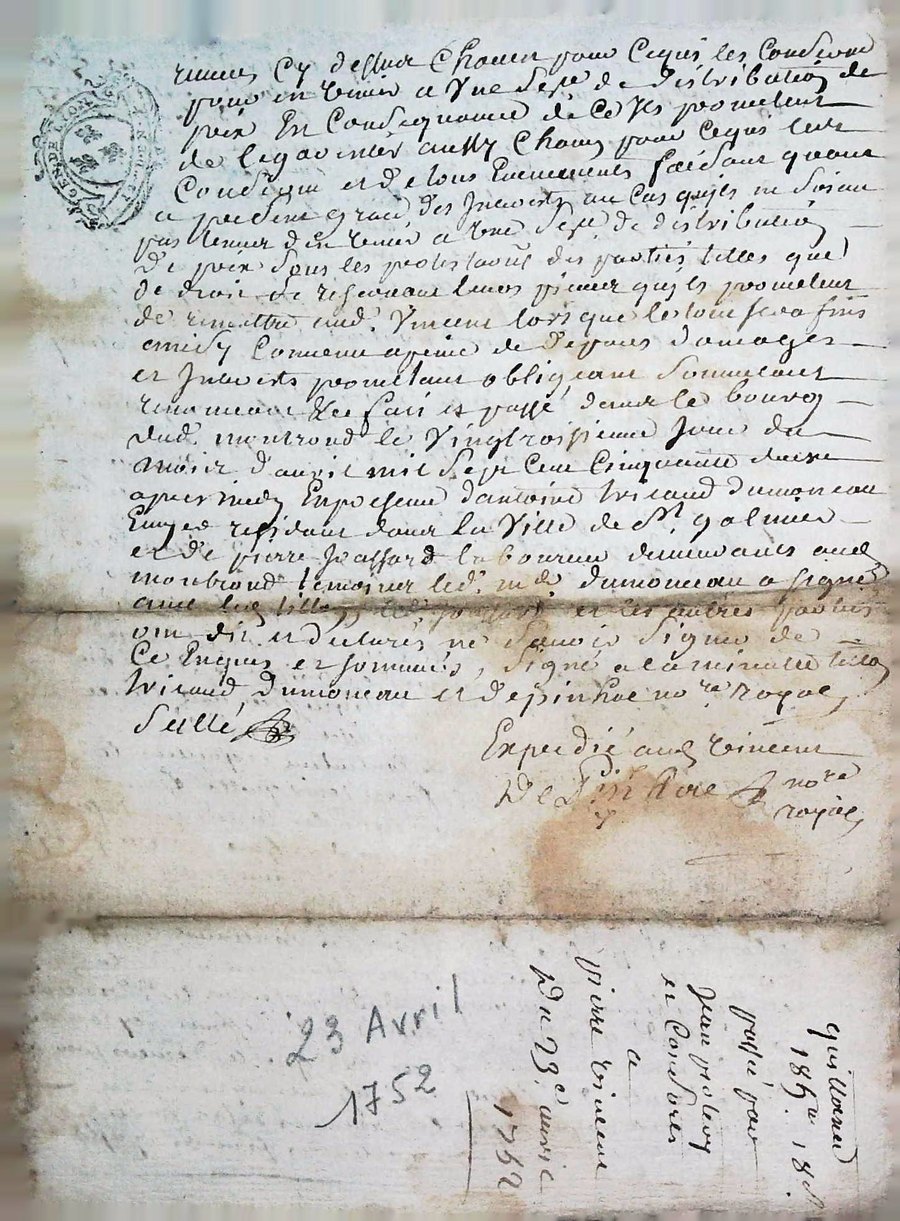 GEN. DE LION
cy dessus chacun pour ce qui les concerne
pour en venir a une de distribution de
prix en consequence de ce ils promettent
de le garentir aussy chacun pour ce qui les
concerne et de tous evenements faisant quant
a present grace des interests au cas qu'ils ne soient
pas tenus d'en venir a une de distribution
de prix sous les protestations des parties telles que
de droit de leurs pieces qu'ils promettent
de remettre aud. Vincent lorsque le tout sera finis
ainsy convenu a peine de depens domages
et interests promettant obligeant soumettant
renonceant &ce fait et passé dans le bourg
dud. montrond le vingtroisieme jour du
mois d'avril mil sept cent cinquante deux
apres midy en presence d'antoine dumonceau
residant dans la ville de St galmier
et de pierre laboureur demeurants aud
montrond temoins led. dumonceau a signé
avec et les autres parties
ont dit et declarés ne scavoir signer de
ce enquis et sommés, signé a la minutte
dumonceau et depinhac nore royal,
sellé
Expedié aud vincent
nore
royal,
23 Avril
1752
quittance
passé par
Jean
et consores
a
pierre vincent
Du 23e avril
1752